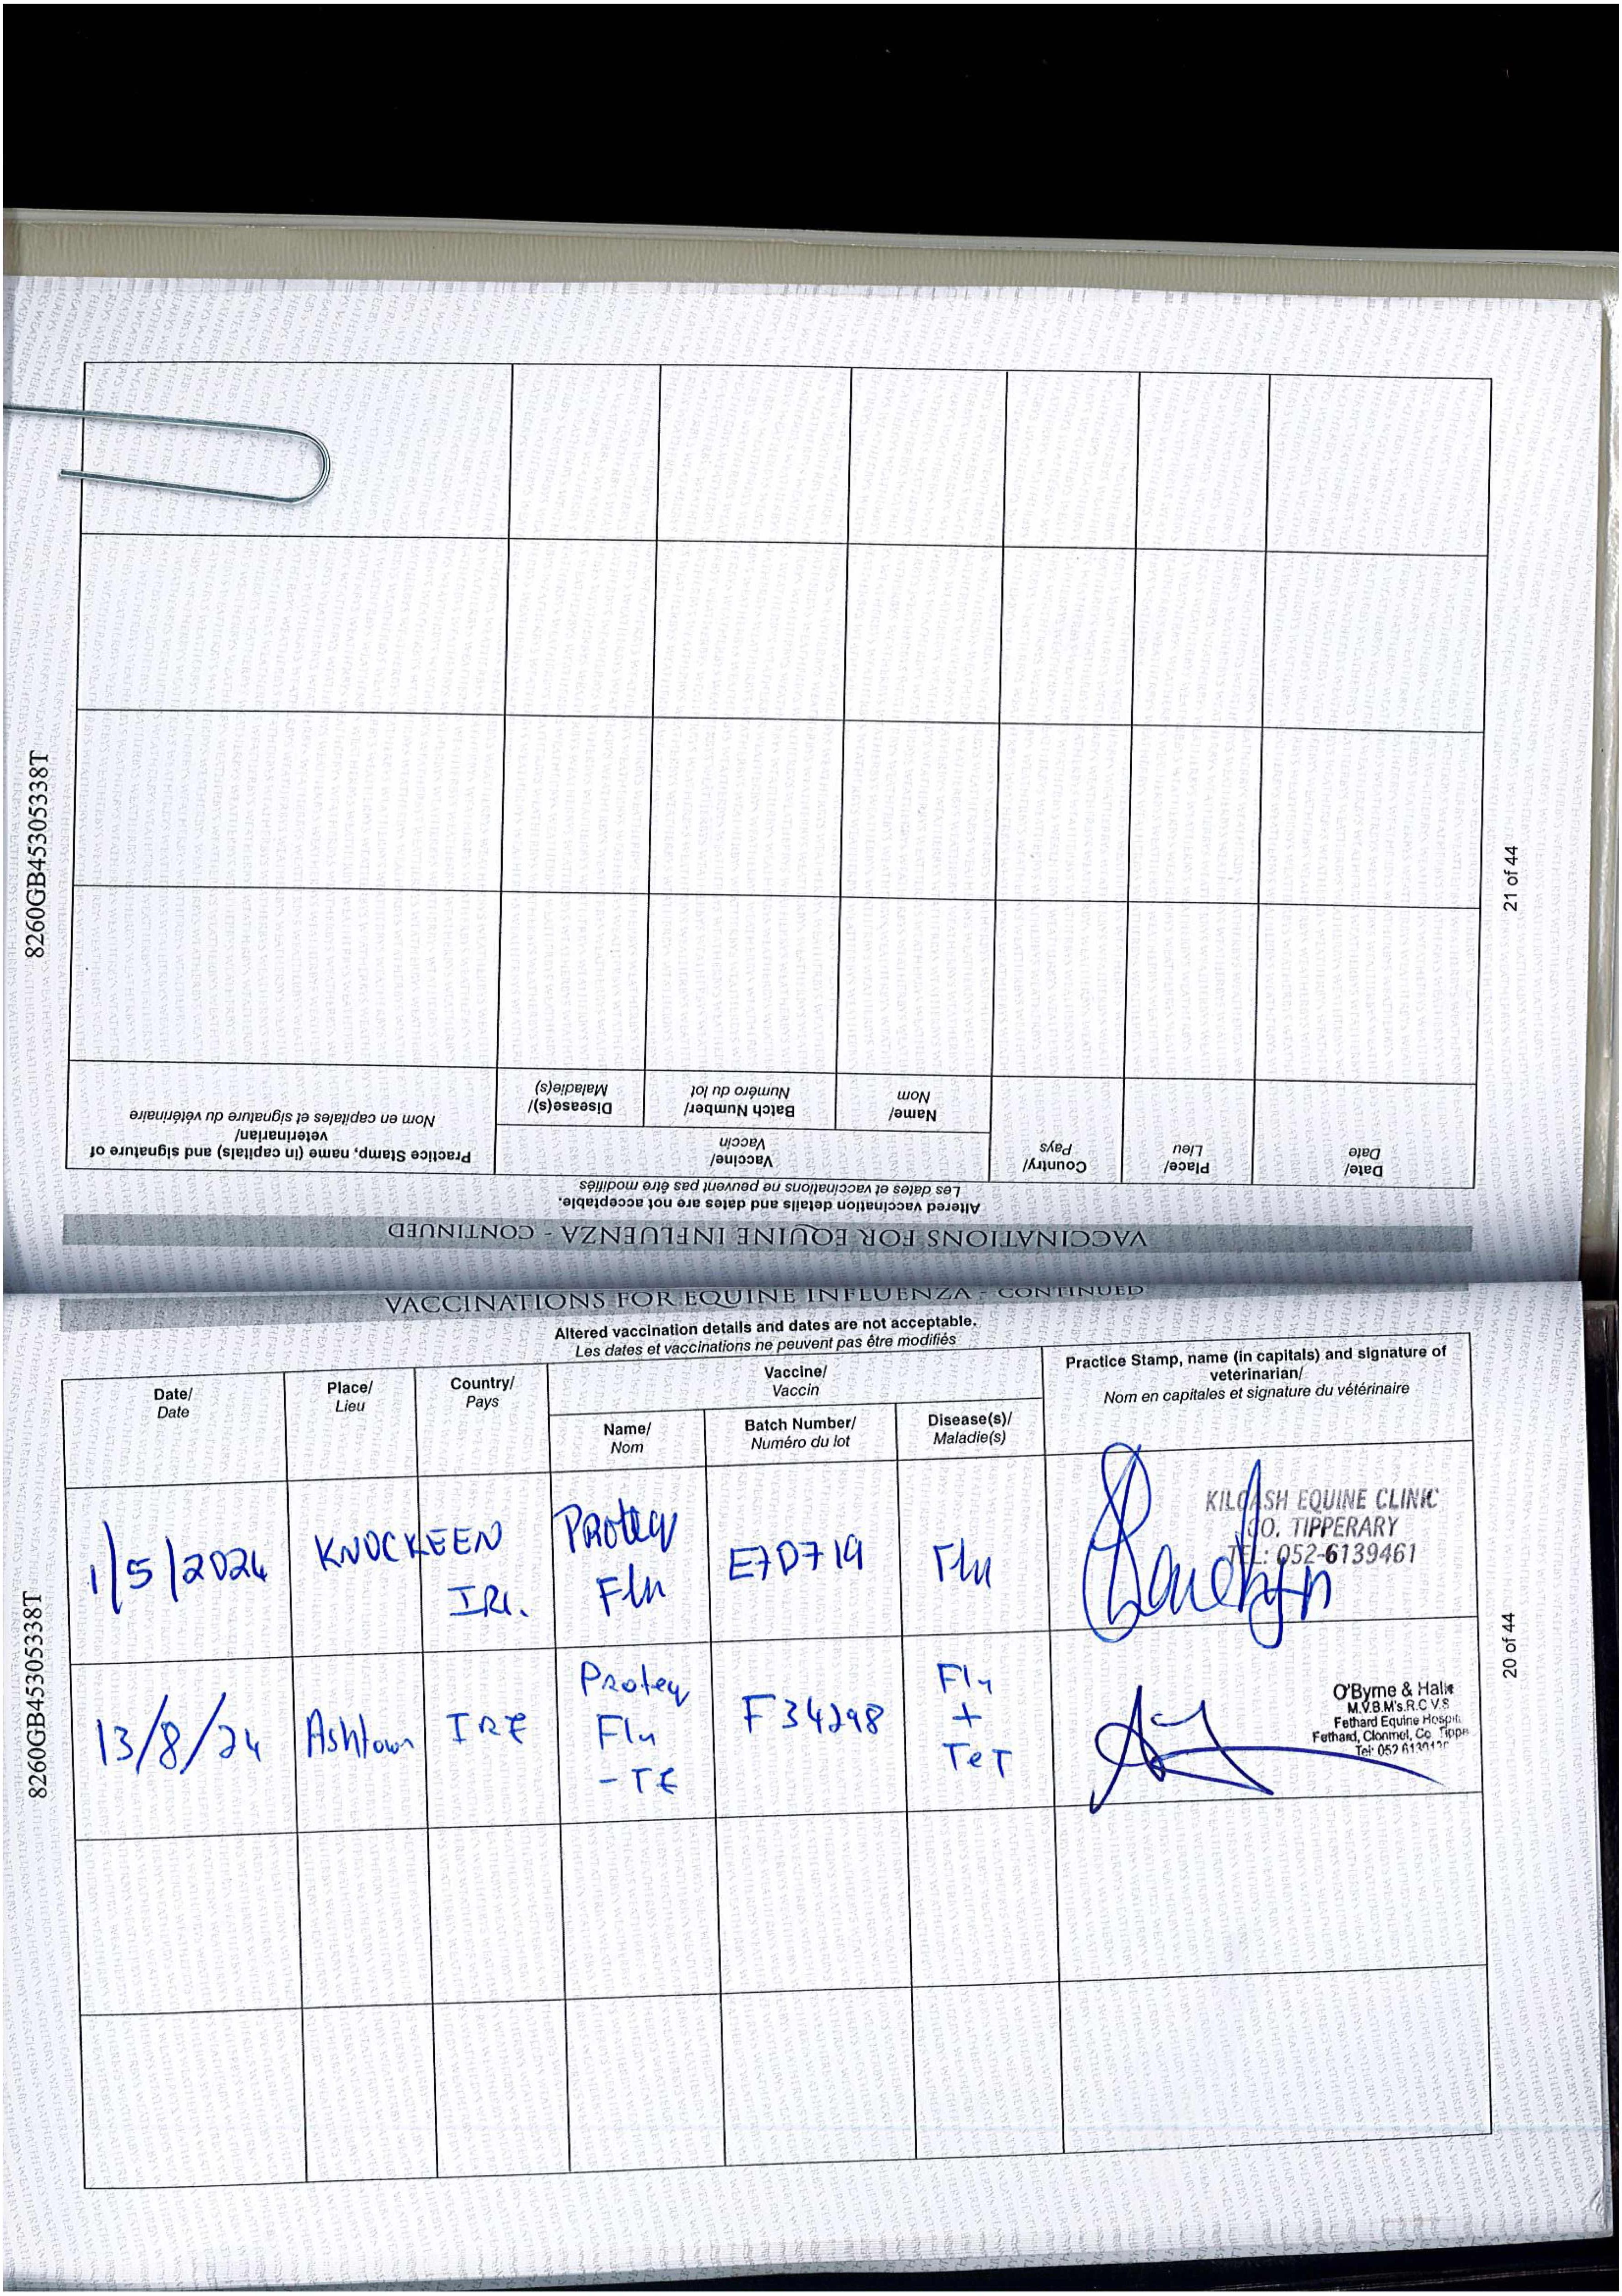 8260GB45305338T
21 of 44
VACCINATIONS FOR EQUINE INFLUENZA - CONTINUED
Altered vaccination details and dates are not acceptable.
Les dates et vaccinations ne peuvent pas être modifiés
Date/
Date
Place/
Lieu
Country/
Pays
Vaccine/
Vaccin
Name/
Nom
Batch Number/
Numéro du lot
Disease(s)/
Maladie(s)
Practice Stamp, name (in capitals) and signature of
veterinarian/
Nom en capitales et signature du vétérinaire
VACCINATIONS FOR EQUINE INFLUENZA - CONTINUED
Altered vaccination details and dates are not acceptable.
Les dates et vaccinations ne peuvent pas être modifiés
Date/
Date
Place/
Lieu
Country/
Pays
Vaccine/
Vaccin
Name/
Nom
Batch Number/
Numéro du lot
Disease(s)/
Maladie(s)
Practice Stamp, name (in capitals) and signature of
veterinarian/
Nom en capitales et signature du vétérinaire
1/5/2024
KNOCKEEN
IRL.
Proteq
Flu
E7D719
Flu
KILCASH EQUINE CLINIC
CO. TIPPERARY
TEL: 052-6139461
13/8/24
Ashtown
IRE
Proteq
Flu
- TE
F34298
Flu
+
TeT
O'Byrne &
M.V.B.M's.R.C.V.S
Fethard Equine
Fethard, Clonmel, Co.
Tel: 052
8260GB45305338T
20 of 44